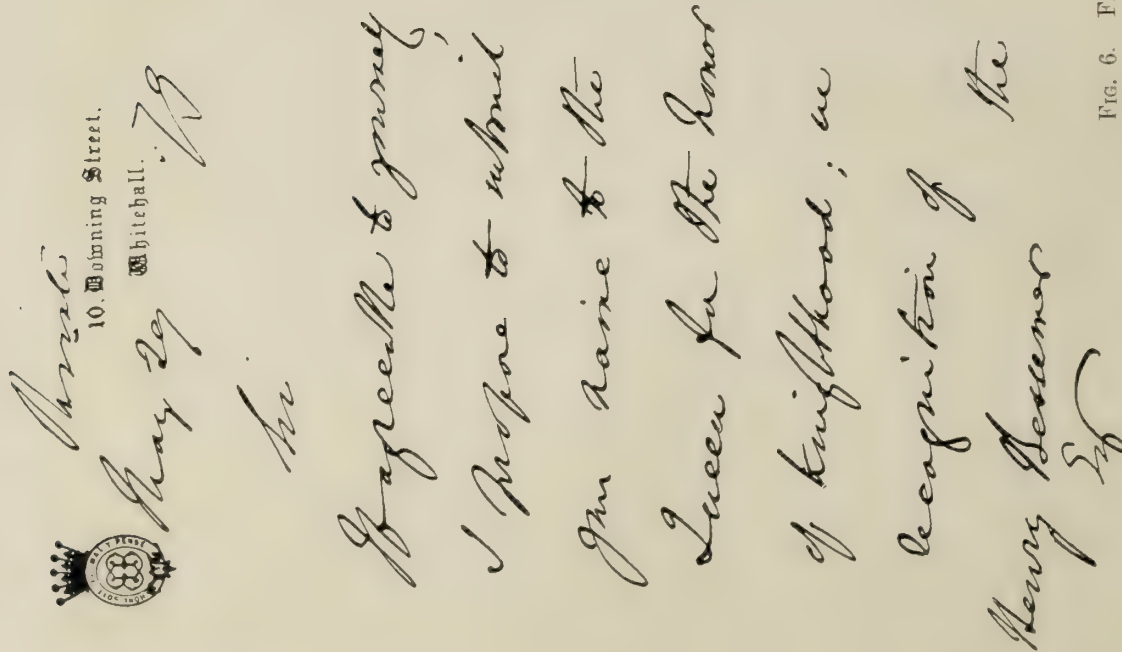 Private
10, Downing Street,
Whitehall.
May 29 .79
HONI SOIT QUI MAL Y PENSE
Sir
If agreeable to yourself,
I propose to submit
your name to the
Queen for the honor
of knighthood, in
recognition of the
Henry Bessemer
Esq
FIG. 6. F